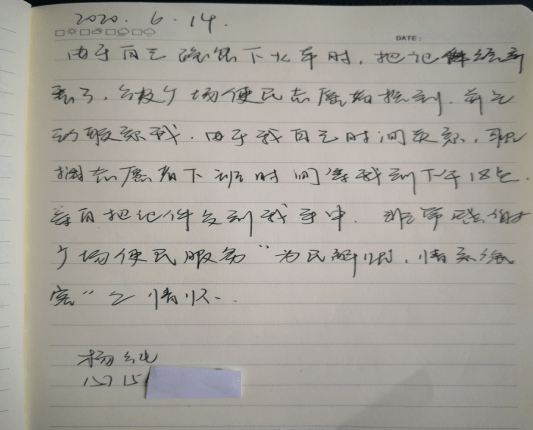 2020.6.14.
DATE:
由于自己 下火车时,把记件
丢了,合肥广场便民志愿者捡到,并主
动联系我,由于我自己时间关系,
志愿者下班时间等我到下午18点
亲自把记件交到我手中.非常感谢
广场便民服务"为民解忧,情系
"之情怀.
杨纯
15715